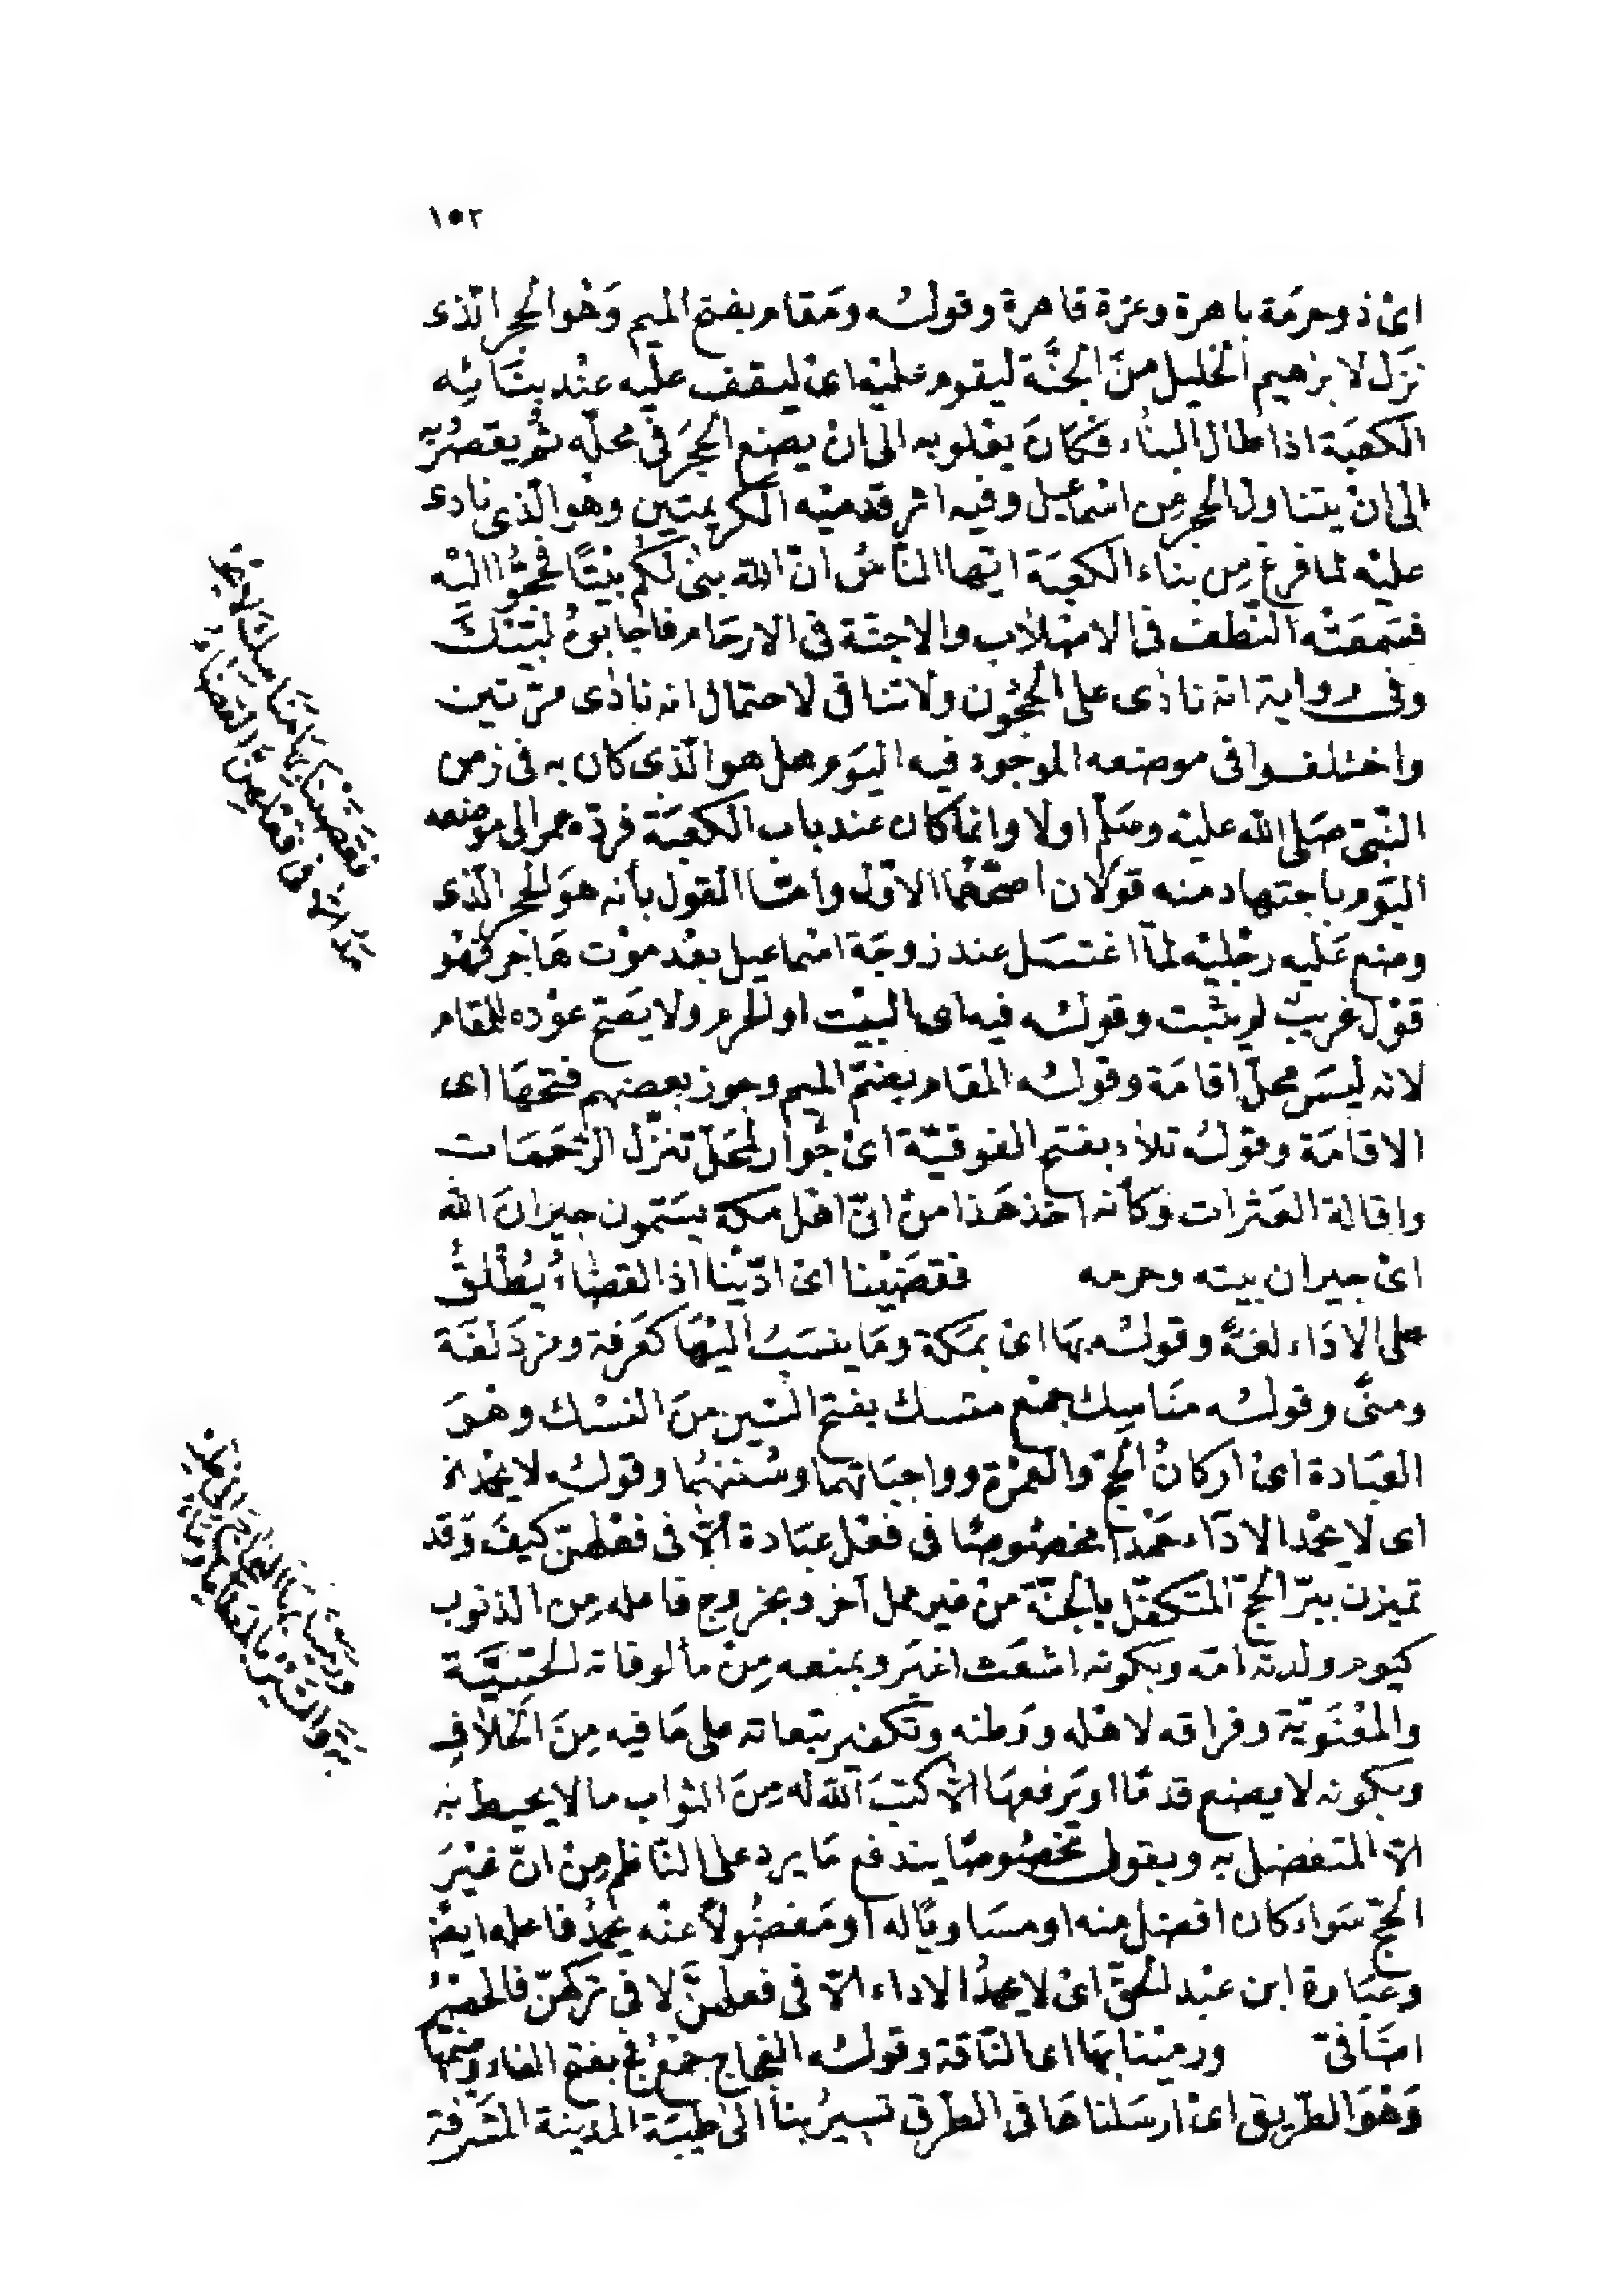 ١٥٢
اىْ ذو حرمَة باهرة وعزة قاهرة وقولـُه ومَقام بفتح الميم وَهْوا لحجر الّذى
نزَل لابرٰهيم الخليل منَ الجنَّة ليقوم عليْه اىْ ليقف عليْه عنْد بنَائِه
الكعبَة اذا طال البنٰاء فكانَ يعْلو به الى انْ يضع الحجَرَ فى محلّه ثم يقصُر به
الى انْ يتناول الحجر مِن اسْماعيل وفيه اثر قدميْه الكريمتين وهو الّذى نادى
عليْه لما فرغ مِن بناء الكعبَة ايّها النّاسُ انّ اللّه بنىٰ لكم بيْتًا فحجُّوا اليْه
فسَمعَتْه النّطف فى الاصْلاب والاجنّة فى الارحَام فاجابوهُ لبّيْكَ
وفى رواية انه نادٰى على الحجُون ولا تنافى لاحتمال انه نادٰى مرّتين
واختلفـوا فى موضعه الموجود فيه اليَوم هل هو الّذى كان به فى زمن
النّبىّ صَلى اللّه عليْه وسَلّم اولا وانما كان عند باب الكعبَة فردّه عمر الى موضعه
اليَوم باجتهاد منه قولان اصحّهُما الاوّل وامّا القول بأنه هوَ الحجر الّذى
وضع عَليه رجْليْه لمّا اغتسَل عند زوجَة اسْماعيل بعْد موْت هَاجر فهْو
قوْل غريبٌ لم يثبت وقولـُه فيه اى البيْت او الحرم ولا يصَحّ عوْده للمقام
لانه ليسَ محلّ اقامَة وقولـُه المقام بضمّ الميم وجوز بعضهم فتحهَا اى
الاقامَة وقولُه تلاء بفتح الفوقيّة اىْ جوار لمحَلّ تنزّل الرّحمَات
واقالة العَثرات وكأنه اخذ هَذا منْ انّ اهْل مكة يسَمّون جيرانَ اللّه
اىْ جيران بيته وحرمه فقضَيْنا اىْ ادّيْنا اذ القضَاءُ يُطْلقُ
على الادَاء لغةً وقولـُه بهَا اىْ بمكة ومَا ينسَبُ اليْهَا كعَرفة ومزدَلفَة
ومنًى وقولـُه منَاسِك جمْع منسك بفتح السّين منَ النسْك وهْوَ
العبَادة اىْ اركانُ الحجّ والعمْرة وواجبَاتهما وسُننهُما وقولـُه لا يحْمد الخ
اى لا يحْمد الادَاء حَمْدًا مخصُوصًا فى فعْل عبَادة الّا فى فعْلهنّ كيفَ وَقد
تميزن ببرّ الحجّ المتكفّل بالجنّة منْ غير عمل آخر وبخروج فاعله مِن الذنوب
كيوم ولدته امّه وبكونه اشعَث اغبَر وبمنعه مِنْ مألوفاته الحسّيَّة
والمعْنَويّة وفراقه لاهْله ووَطنه وتكفير تبعاته على مَا فيه مِنَ الخلَافِ
وبكونه لا يضع قدمًا او يَرفعهَا الّا كتبَ اللّه له مِنَ الثواب ما لا يحيط به
الّا المتفضل به وبقولى مخصُوصًا يندفع مَا يرد على النّاظم مِنْ انّ غيْرَ
الحجّ سَواء كان افضل منه او مسَاويًا له او مَفضُولًا عنْه يحْمدُ فاعله ايضًا
وعبَارة ابن عبْد الحقّ اىْ لا يحْمدُ الاداء الّا فى فعلهنَّ لا فى تركهنّ فالحصْرُ
اضَافىّ ورميْنا بهَا اى النّاقة وقولـُه الفجاج جمْعُ فجّ بفتح الفاء وضمّها
وَهْوَ الطّريق اىْ ارسَلناهَا فى الطّرق تسيرُ بنا الى طيْبَة المدينة المشَرفة
فقضَيْنَا بهَا منَاسِك لا يحْـ
مَد الّا فى فعْلهِنّ القضَاءُ
ورميْنا بهَا الفجَاج الى طيْـ
بَة والسّيْر بالمطَايا رمَاءُ